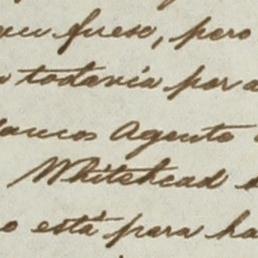 fuese, pero
todavia para
Agento
Whitehead
o está para ha